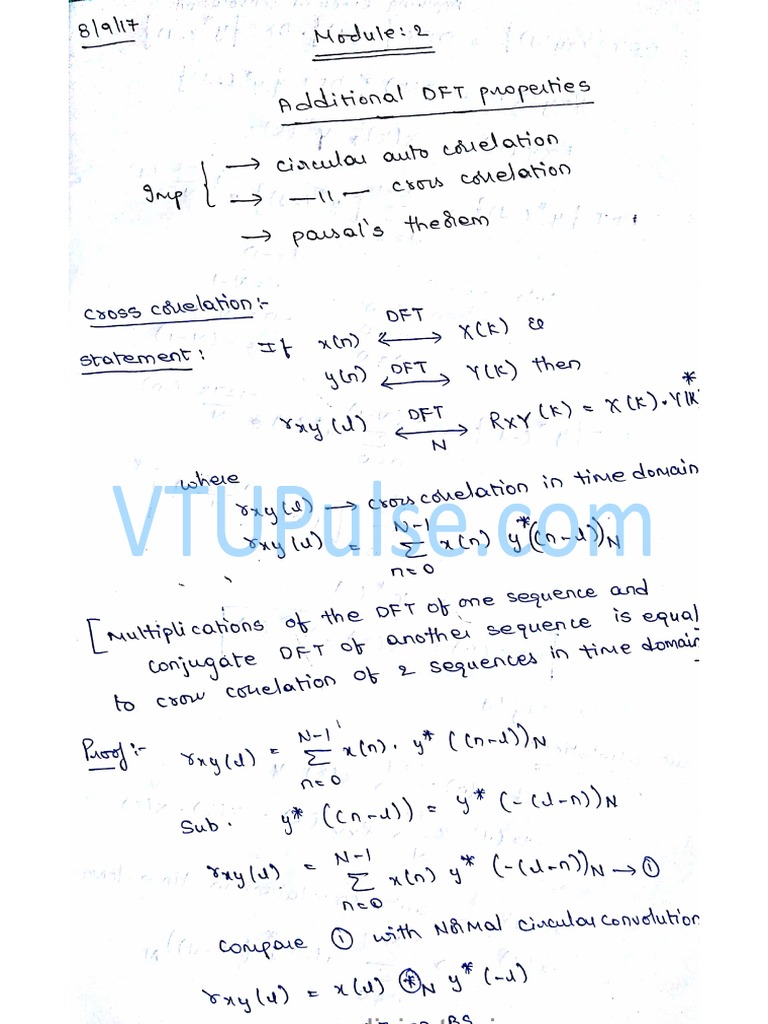 8/9/17
Module: 2
Additional DFT properties
Imp { → circular auto correlation
→ —11— cross correlation
→ parsal's theorem
Cross correlation:-
Statement: If x(n) DFT ↔ X(K) &
y(n) DFT ↔ Y(K) then
rxy(l) DFT ↔ N RXY(K) = X(K).Y(K)*
where
rxy(l) → cross correlation in time domain
rxy(l) = N-1 Σ n=0 x(n) y*((n-l))N
VTUPulse.com
[Multiplications of the DFT of one sequence and
conjugate DFT of another sequence is equal
to cross correlation of 2 sequences in time domain
Proof:- rxy(l) = N-1 Σ n=0 x(n). y*((n-l))N
Sub. y*((n-l)) = y*(-(l-n))N
rxy(l) = N-1 Σ n=0 x(n) y*(-(l-n))N → ①
Compare ① with Normal circular convolution
rxy(l) = x(l) ⊛N y*(-l)